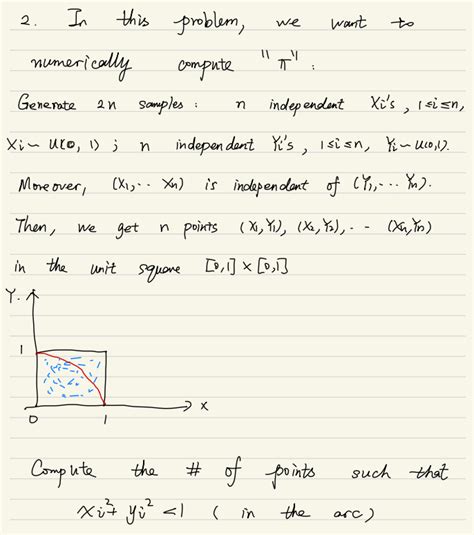 2. In this problem, we want to
numerically compute "π":
Generate 2n samples: n independent Xi's, 1≤i≤n,
Xi ~ U(0, 1); n independent Yi's, 1≤i≤n, Yi ~ U(0,1).
Moreover, (X1, ·· Xn) is independent of (Y1, ··· Yn).
Then, we get n points (X1, Y1), (X2, Y2), ·· (Xn, Yn)
in the unit square [0,1] × [0,1]
Y.
1
0 1 X
Compute the # of points such that
Xi² + Yi² < 1 (in the arc)